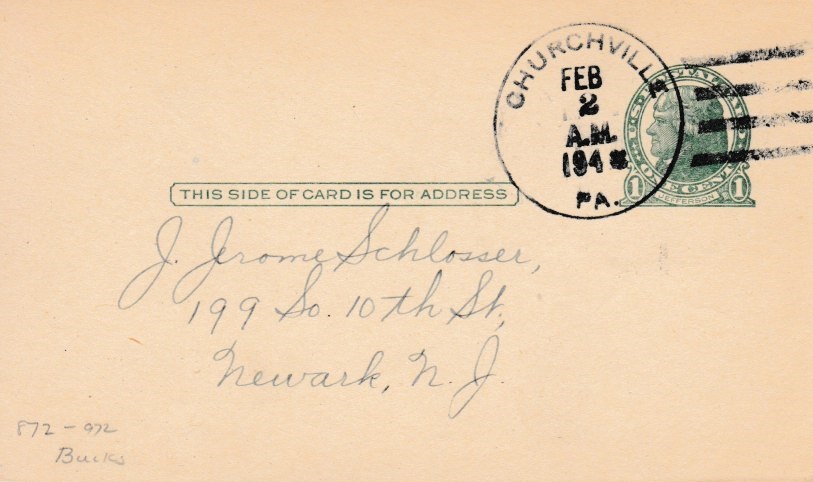 CHURCHVILL
FEB
2
A.M.
194
PA.
U.S.
ONE CENT
1 1
JEFFERSON
THIS SIDE OF CARD IS FOR ADDRESS
J. Jerome Schlosser,
199 So. 10th St.,
Newark, N. J.
872 - 972
Bucks